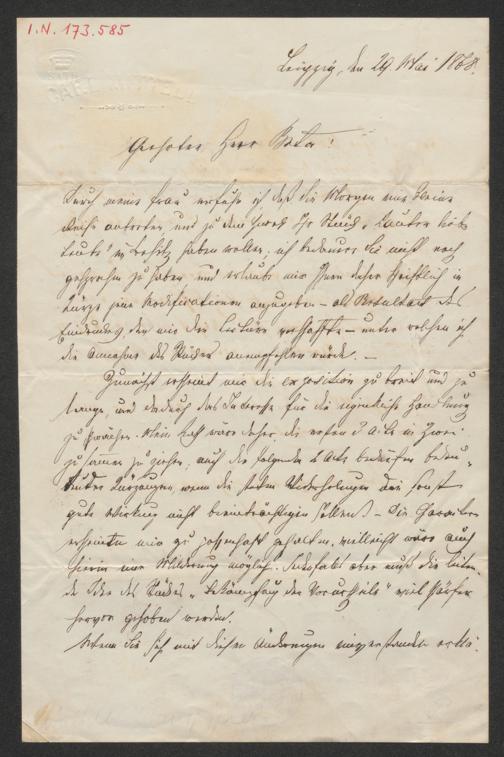 I.N. 173.585
CARL
Leipzig, den 29. Mai 1868.
Geehrter Herr Beta!
Durch meine Frau erfuhr ich daß Sie Morgen eine kleine
Reise antreten, und zu dem Zweck Ihr Stück „Lauter liebe
Leute" in Besitz haben wollen; ich bedaure Sie nicht noch
gesprochen zu haben und erlaube mir Ihnen daher schriftlich in
Kürze jene Modificationen anzugeben – als Resultat des
Eindrucks, den mir die Lectüre verschaffte – unter welchen ich
die Annahme des Stückes anempfehlen würde. –
Zunächst scheint mir die Exposition zu breit und zu
lange, und dadurch das Interesse für die eigentliche Handlung
zu schwächen. Mein Rath wäre daher, die ersten 3 Akte in Zwei
zu ziehen, auch die folgenden 2 Akte bedürfen bedeu-
tender Kürzungen, wenn die steten Wiederholungen die sonst
gute Wirkung nicht beeinträchtigen sollen. – Die Charaktere
erscheinen mir zu possenhaft gehalten, vielleicht wäre auch
hierin eine Milderung möglich. Jedenfalls aber muß die leiten-
de Idee des Stückes „Bekämpfung des Vorurtheils" viel schärfer
hervor gehoben werden.
Wenn Sie sich mit diesen Änderungen einverstanden erklä-